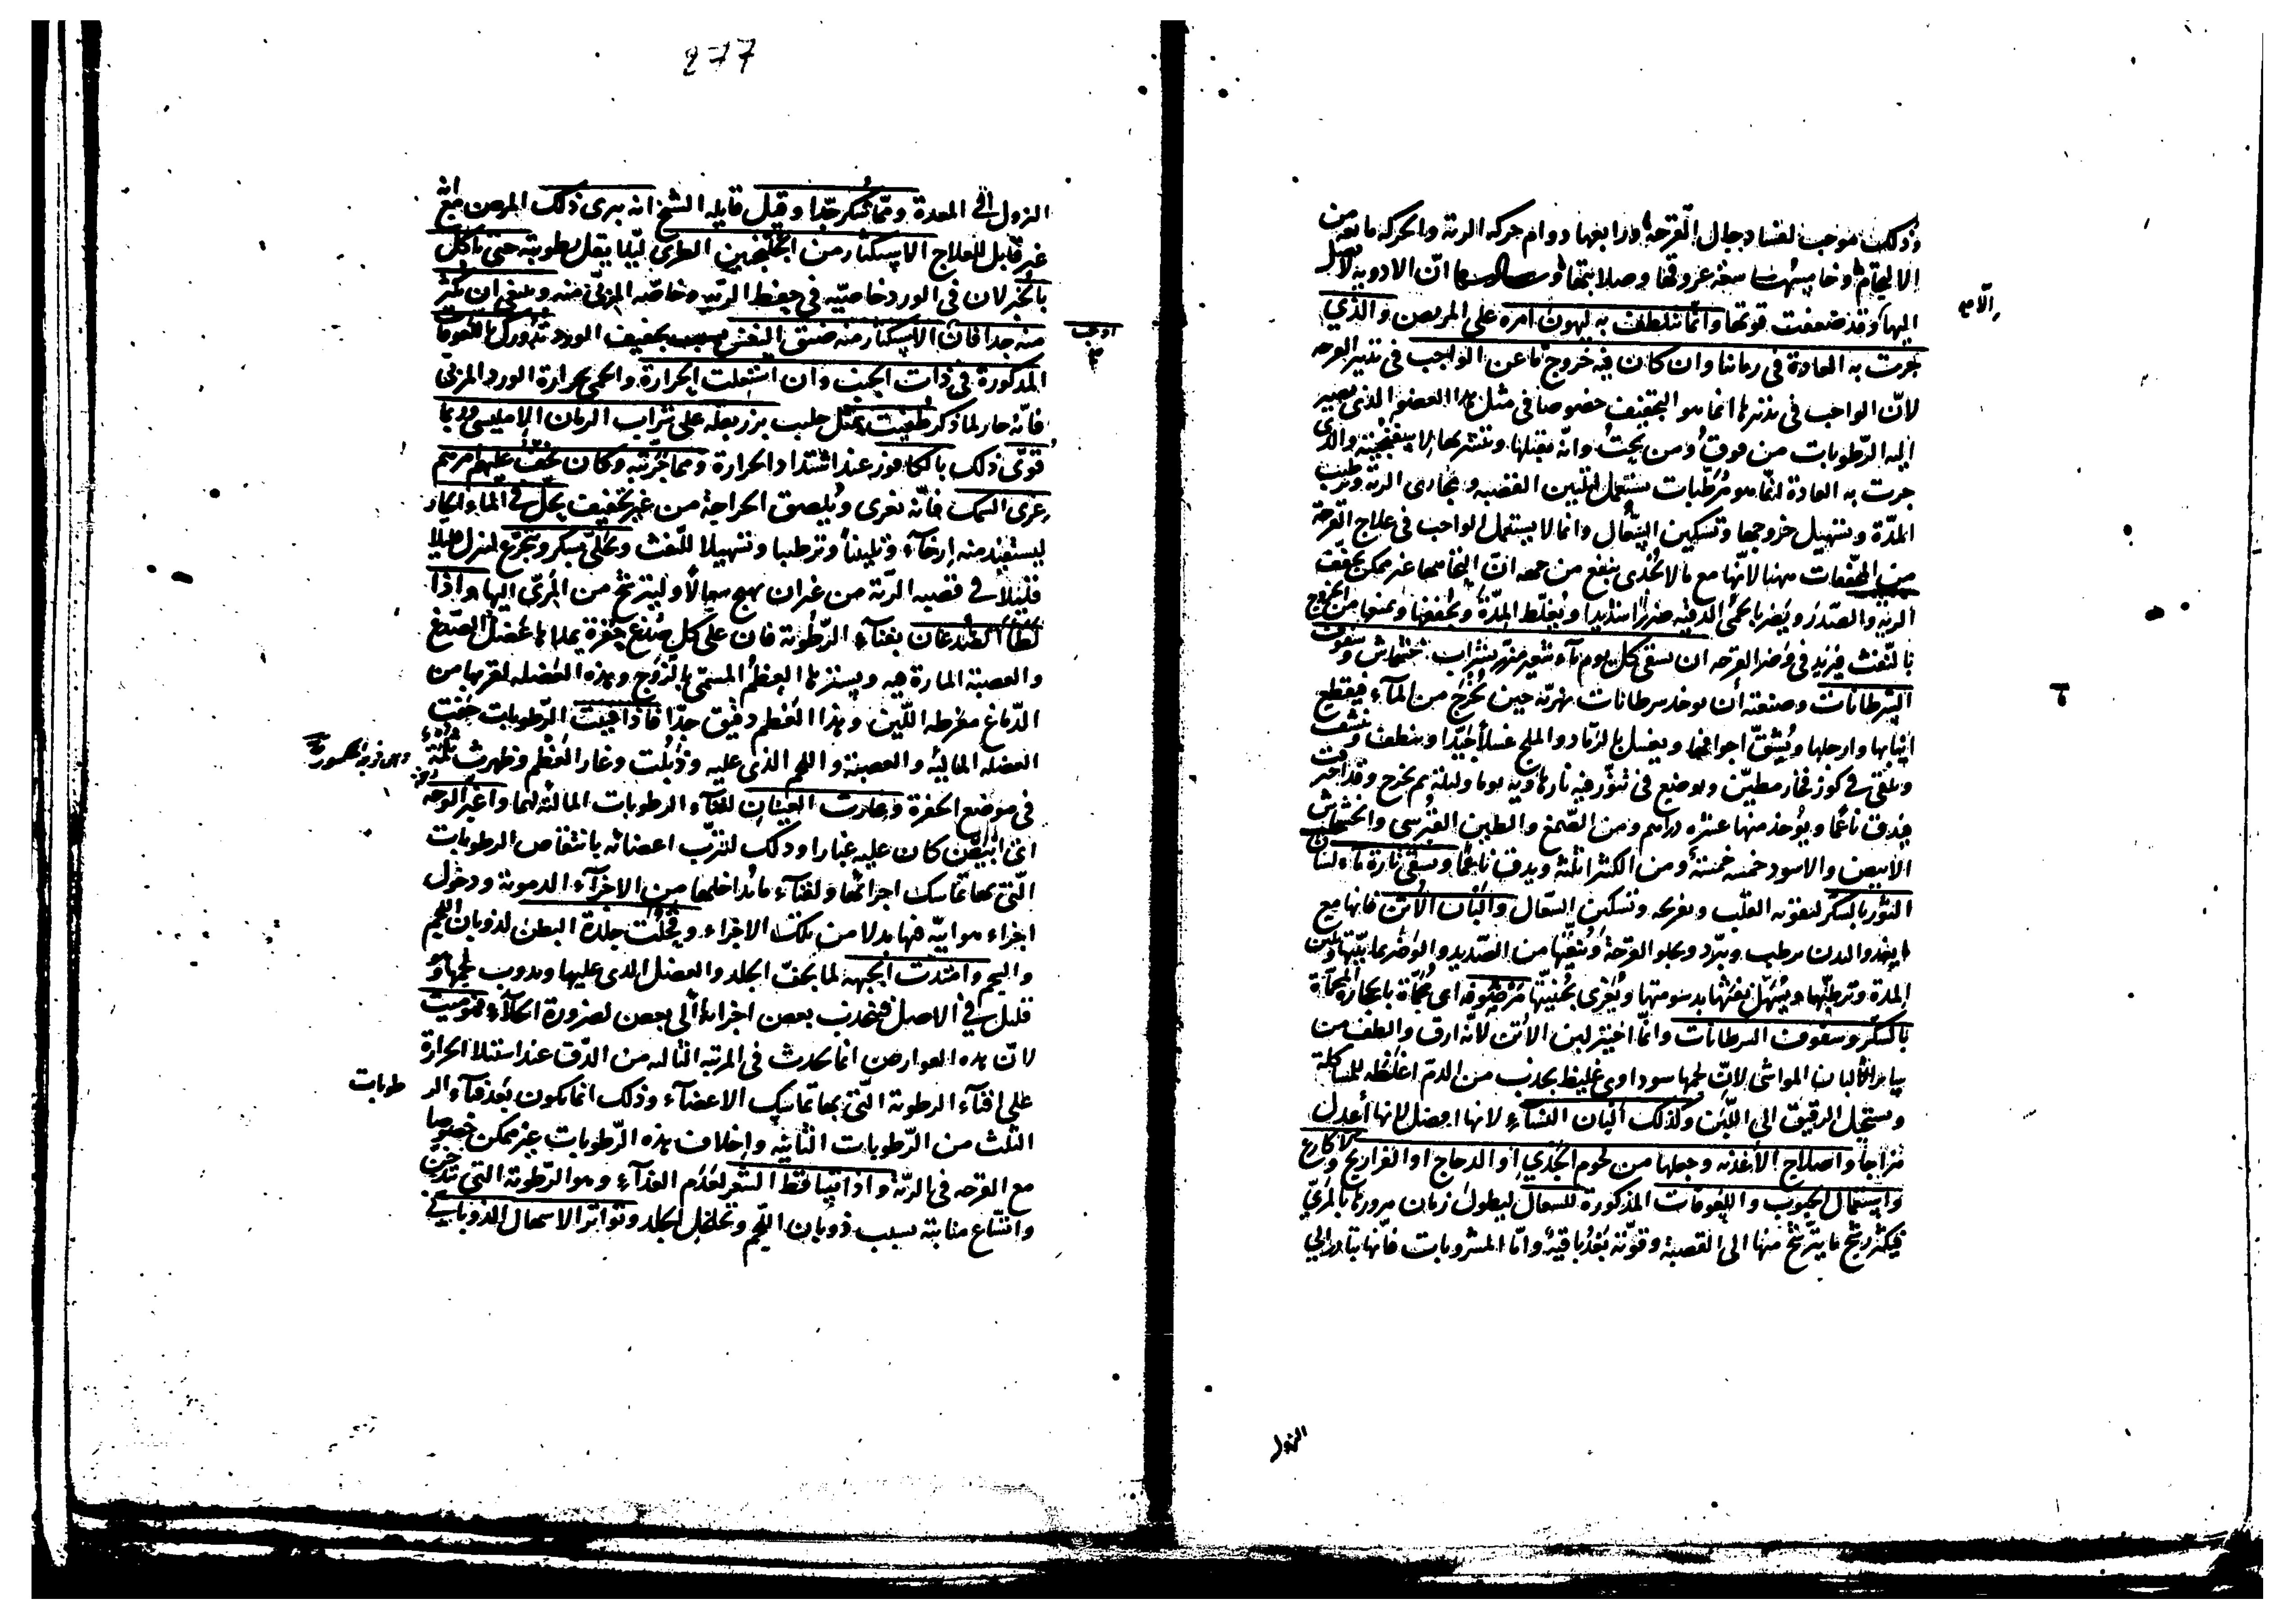 وذلك موجب لفساد حال القرحة ورابعها دوام حركة الرية والحركة مانعة من
الالتحام وخامسها سعة عروقها وصلابتها ان الادوية لا تصل
اليها وقد ضعفت قوتها وانما نتلطف به ليهون امره على المريض والذي
جرت به العادة في زماننا وان كان فيه خروج ما عن الواجب في تدبير القرحة
لان الواجب في تدبيرها انما هو التجفيف خصوصا في مثل هذا العضو الذي يصير
اليه الرطوبات من فوق ومن تحت وانه يقبلها وينشربها لاسفنجيته والذي
جرت به العادة انما هو مرطبات تستعمل لتليين القصبة ومجاري الرية وترطيب
المدة وتسهيل خروجها وتسكين السعال وانما لا يستعمل الواجب في علاج القرحة
من المجففات ههنا لانها مع ما لا تجدي بنفع من جهة ان التحامها غير ممكن يجفف
الرية والصدر ويضر بالحمى الدقية ضررا شديدا ويغلظ المدة ويجففها ويمنعها من الخروج
بالنفث فيزيد في وضر القرحة ان يسقى كل يوم ماء شعير مبزر بشراب خشخاش وسفوف
السرطانات وصنعته ان يوخذ سرطانات نهرية حين تخرج من الماء فيقطع
انيابها وارجلها ويشق اجوافها ويغسل بالرماد والملح غسلا جيدا وينظف وينشف
ويلقى في كوز فخار مطين ويوضع في تنور فيه نار هادية يوما وليلة ثم يخرج وقد احترقت
فيدق ناعما ويؤخذ منها عشرة دراهم ومن الصمغ والطين القبرسي والخشخاش
الابيض والاسود خمسة خمسة ومن الكثيرا ثلثة ويدق ناعما ويسقى تارة ماء لسان
الثور بالسكر لتقوية القلب وتفريحه وتسكين السعال والبان الاتن فانها مع
ما يغذو البدن يرطب ويبرد ويجلو القرحة وينقيها من الصديد والوضر بمائيتها ويلين
المدة وترطبها ويسهل نفثها بدسومتها ويغري بجبنيتها مرضوفة اي محماة بالحجارة المحماة
بالسكر وسفوف السرطانات وانما اختير لبن الاتن لانه ارق والطف من
سائر البان المواشي لان لحمها سوداوي غليظ يجذب من الدم اغلظه للمشاكلة
ويستحيل الرقيق الى اللبن وكذلك البان النساء لانها افضل لانها اعدل
مزاجا واصلاح الاغذية وجعلها من لحوم الجدي او الدجاج او الفراريج والاكارع
واستعمال الحبوب واللعوقات المذكورة للسعال ليطول زمان مرورها بالمري
فيكثر رشح ما يترشح منها الى القصبة وقوته بعد باقية واما المشروبات فانها تبادر الى
النزول
277
النزول الى المعدة ومما شكر جدا وقيل قايله الشيخ انه يبرئ ذلك المرض مع انه
غير قابل للعلاج الاستكثار من الجلنجبين الطري ليلا يقل رطوبته حتى ياكل
بالخبز لان في الورد خاصية في حفظ الرية وخاصة المربى منه وينبغي ان يكثر
منه جدا فان اوجب الاستكثار منه ضيق النفس بسبب تجفيف الورد تدورك باللعوقات
المذكورة في ذات الجنب وان اشتعلت الحرارة والحمى بحرارة الورد المربى
فانه حار لما ذكر طفيت بمثل حليب بزر بقلة على شراب الرمان الامليسي وربما
قوي ذلك بالكافور عند اشتداد الحرارة ومما جربته وكان يخف عليهم امرهم
غرى السمك فانه يغري ويلصق الجراحة من غير تجفيف يحل في الماء الحار
ليستفيد منه ارخاء وتليينا وترطيبا وتسهيلا للنفث ويحلى بسكر ويتجرع لينزل قليلا
قليلا في قصبة الرية من غير ان يهيج سعالا وليترشح من المري اليها واذا
لطأ الصدغان بفناء الرطوبة فان على كل صدغ حفرة يملأها عضل الصدغ
والعصبة المارة فيه ويسترها العظم المسمى بالزوج وهذه العضلة لقربها من
الدماغ مفرطة اللين وهذا العظم دقيق جدا فاذا فنيت الرطوبات جفت
العضلة المالية والعصبة واللحم الذي عليه وذبلت وغار العظم وظهرت ثلمة
في موضع الحفرة وغارت العينان لفناء الرطوبات المالئة لهما واغبر الوجه
اي ابيض كان عليه غبارا وذلك لتترب اعضائه بانتقاص الرطوبات
التي بها تماسك اجزائها ولفناء ما يداخلها من الاجزاء الدموية ودخول
اجزاء هوائية فيها بدلا من تلك الاجزاء وقحلت جلدة البطن لذوبان اللحم
والشحم وامتدت الجبهة لما يجف الجلد والعضل الذي عليها ويذوب لحمها وهو
قليل في الاصل فينجذب بعض اجزائها الى بعض لضرورة الخلاء فهو ميت
لان هذه العوارض انما تحدث في المرتبة الثالثة من الدق عند استيلاء الحرارة
على افناء الرطوبة التي بها تماسك الاعضاء وذلك انما يكون بعد فناء الرطوبات
الثلث من الرطوبات الثانية واخلاف هذه الرطوبات غير ممكن خصوصا
مع القرحة في الرية واذا تساقط الشعر لعدم الغذاء وهو الرطوبة التي تدخن
واتساع منابته بسبب ذوبان اللحم وتخلخل الجلد وتواتر الاسهال الذوباني